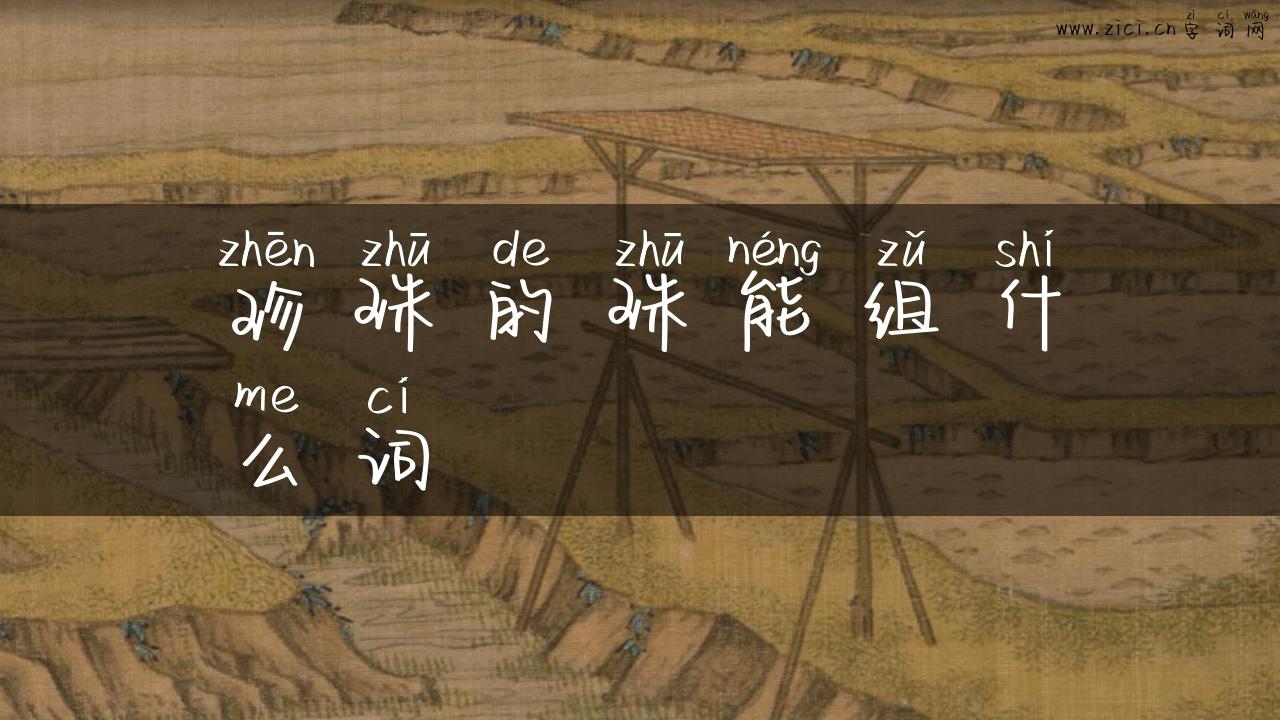 zì cí wǎng
www.zici.cn 字词网
zhēn zhū de zhū néng zǔ shí
珍珠的珠能组什
me cí
么词